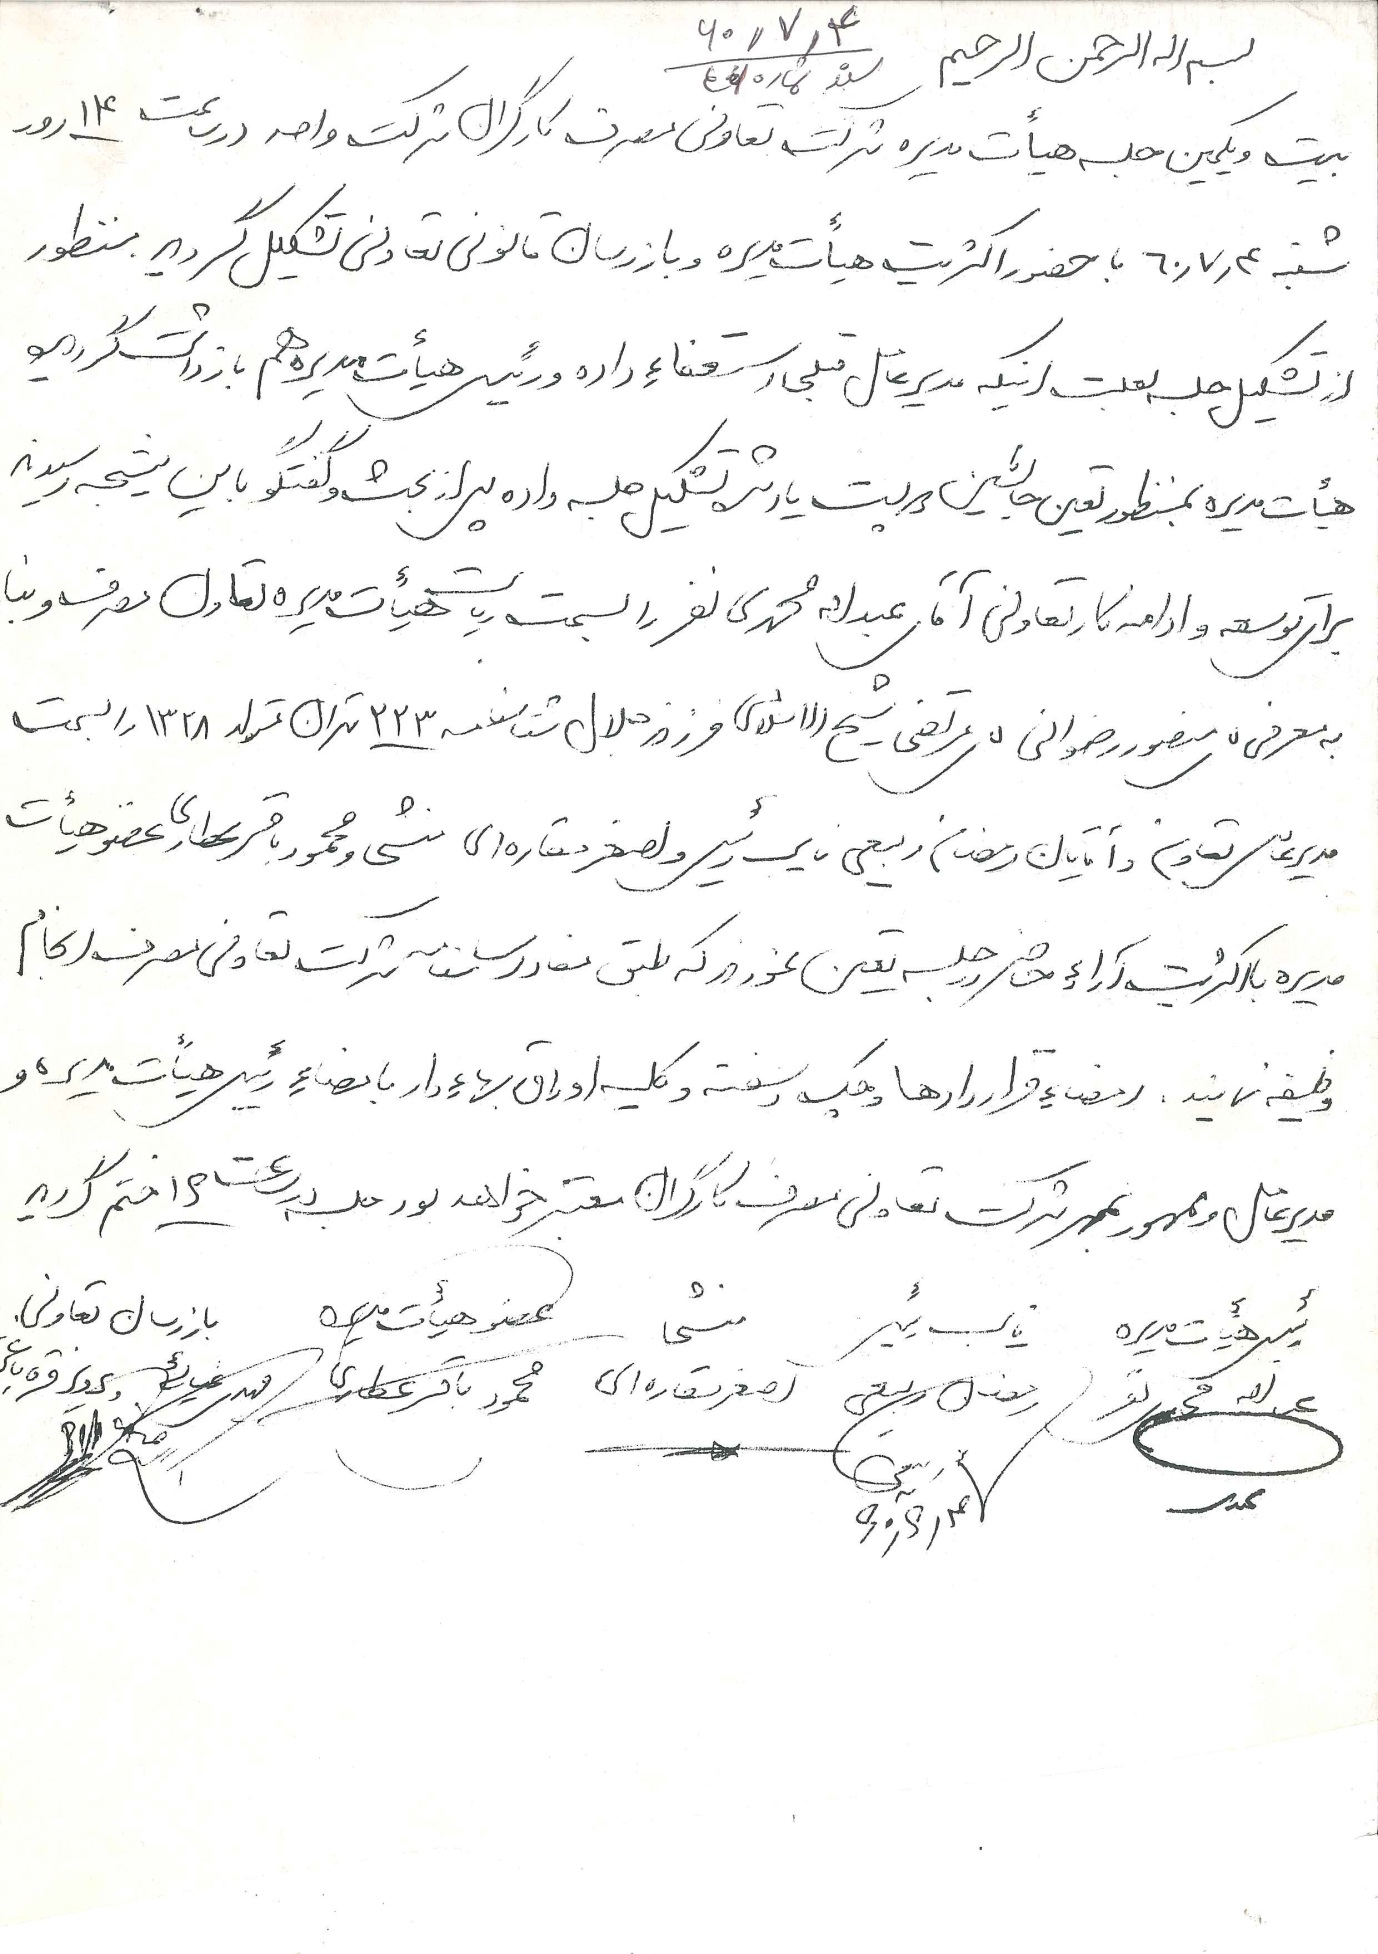 بسم اله الرحمن الرحیم
۶۰٫۷٫۴
سند شماره
بیست و یکمین جلسه هیأت مدیره شرکت تعاونی مصرف کارگران شرکت واحد در ساعت ۱۴ روز
شنبه ۶۰٫۷٫۴ با حضور اکثریت هیأت مدیره و بازرسان قانونی تعاونی تشکیل گردید. منظور
از تشکیل جلسه بعلت اینکه مدیرعامل قبلی استعفاء داده و رئیس هیأت مدیره هم بازداشت گردیده
هیأت مدیره بمنظور تعین جانشین تشکیل جلسه داده پس از بحث و گفتگو باین نتیجه رسیدند
برای توسعه و ادامه کار تعاونی آقای عبداله محمدی نفر را بسمت ریاست هیأت مدیره تعاون مصرف و بنا
به معرفی منصور رضوانی مرتضی شیخ الاسلامی فرزند جلال شناسنامه ۲۲۳ تهران متولد ۱۳۲۸ را بسمت
مدیرعامل تعاونی و آقایان رمضان ربیعی نایب رئیس و اصغر نقاره‌ای منشی و محمود باقر عطاری عضو هیأت
مدیره با اکثریت آراء حاضر در جلسه تعین نمودند که طبق مفاد اساسنامه شرکت تعاونی مصرف انجام
وظیفه نمایند. امضاء قراردادها و چک و سفته و کلیه اوراق بهاءدار با امضاء رئیس هیأت مدیره و
مدیرعامل و ممهور بمهر شرکت تعاونی مصرف کارگران معتبر خواهد بود جلسه در ساعت ۱۶ ختم گردید
رئیس هیأت مدیره نایب رئیس منشی عضو هیأت مدیره بازرسان تعاونی.
عبداله محمدی نفر رمضان ربیعی اصغر نقاره‌ای محمود باقر عطاری مهدی و پرویز